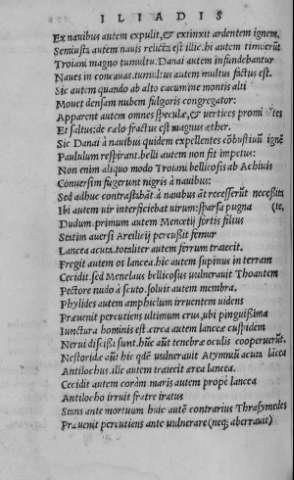 ILIADIS
Ex nauibus autem expulit, & extinxit ardentem ignem.
Semiusta autem nauis relicta est illic. hi autem timuerũt
Troiani magno tumultu. Danai autem infundebantur
Naues in concauas. tumultus autem multus factus est.
Sic autem quando ab alto cacumine montis alti
Mouet densam nubem fulgoris congregator:
Apparent autem omnes speculæ, & uertices promi tes
Et saltus: de cælo fractus est magnus æther.
Sic Danai à nauibus quidem expellentes cõbustiuũ ignẽ
Paululum respirant. belli autem non fit impetus:
Non enim aliquo modo Troiani bellicosis ab Achiuis
Conuersim fugerunt nigris à nauibus:
Sed adhuc contrastabãt à nauibus aũt recesserũt necessita
Ibi autem uir interficiebat uirum: sparsa pugna (te,
Dudum primum autem Menœtij fortis filius
Statim auersi Areilicij percussit femur
Lancea acuta. totaliter autem ferrum traiecit.
Fregit autem os lancea. hic autem supinus in terram
Cecidit. sed Menelaus bellicosus uulnerauit Thoantem
Pectore nudo à scuto. soluit autem membra.
Phylides autem amphiclum irruentem uidens
Præuenit percutiens ultimum crus, ubi pinguißima
Iunctura hominis est. circa autem lanceæ cuspidem
Nerui discißi sunt. hũc aũt tenebræ oculis cooperuerũt.
Nestoridæ aũt hic qdẽ uulnerauit Atymniũ acuta lãcea
Antilochus. ilic autem traiecit ærea lancea.
Cecidit autem corãm. maris autem propè lancea
Antilocho irruit fratre iratus
Stans ante mortuum huic autẽ contrarius Thrasymedes
Præuenit percutiens ante uulnerare (neq; aberrauit)